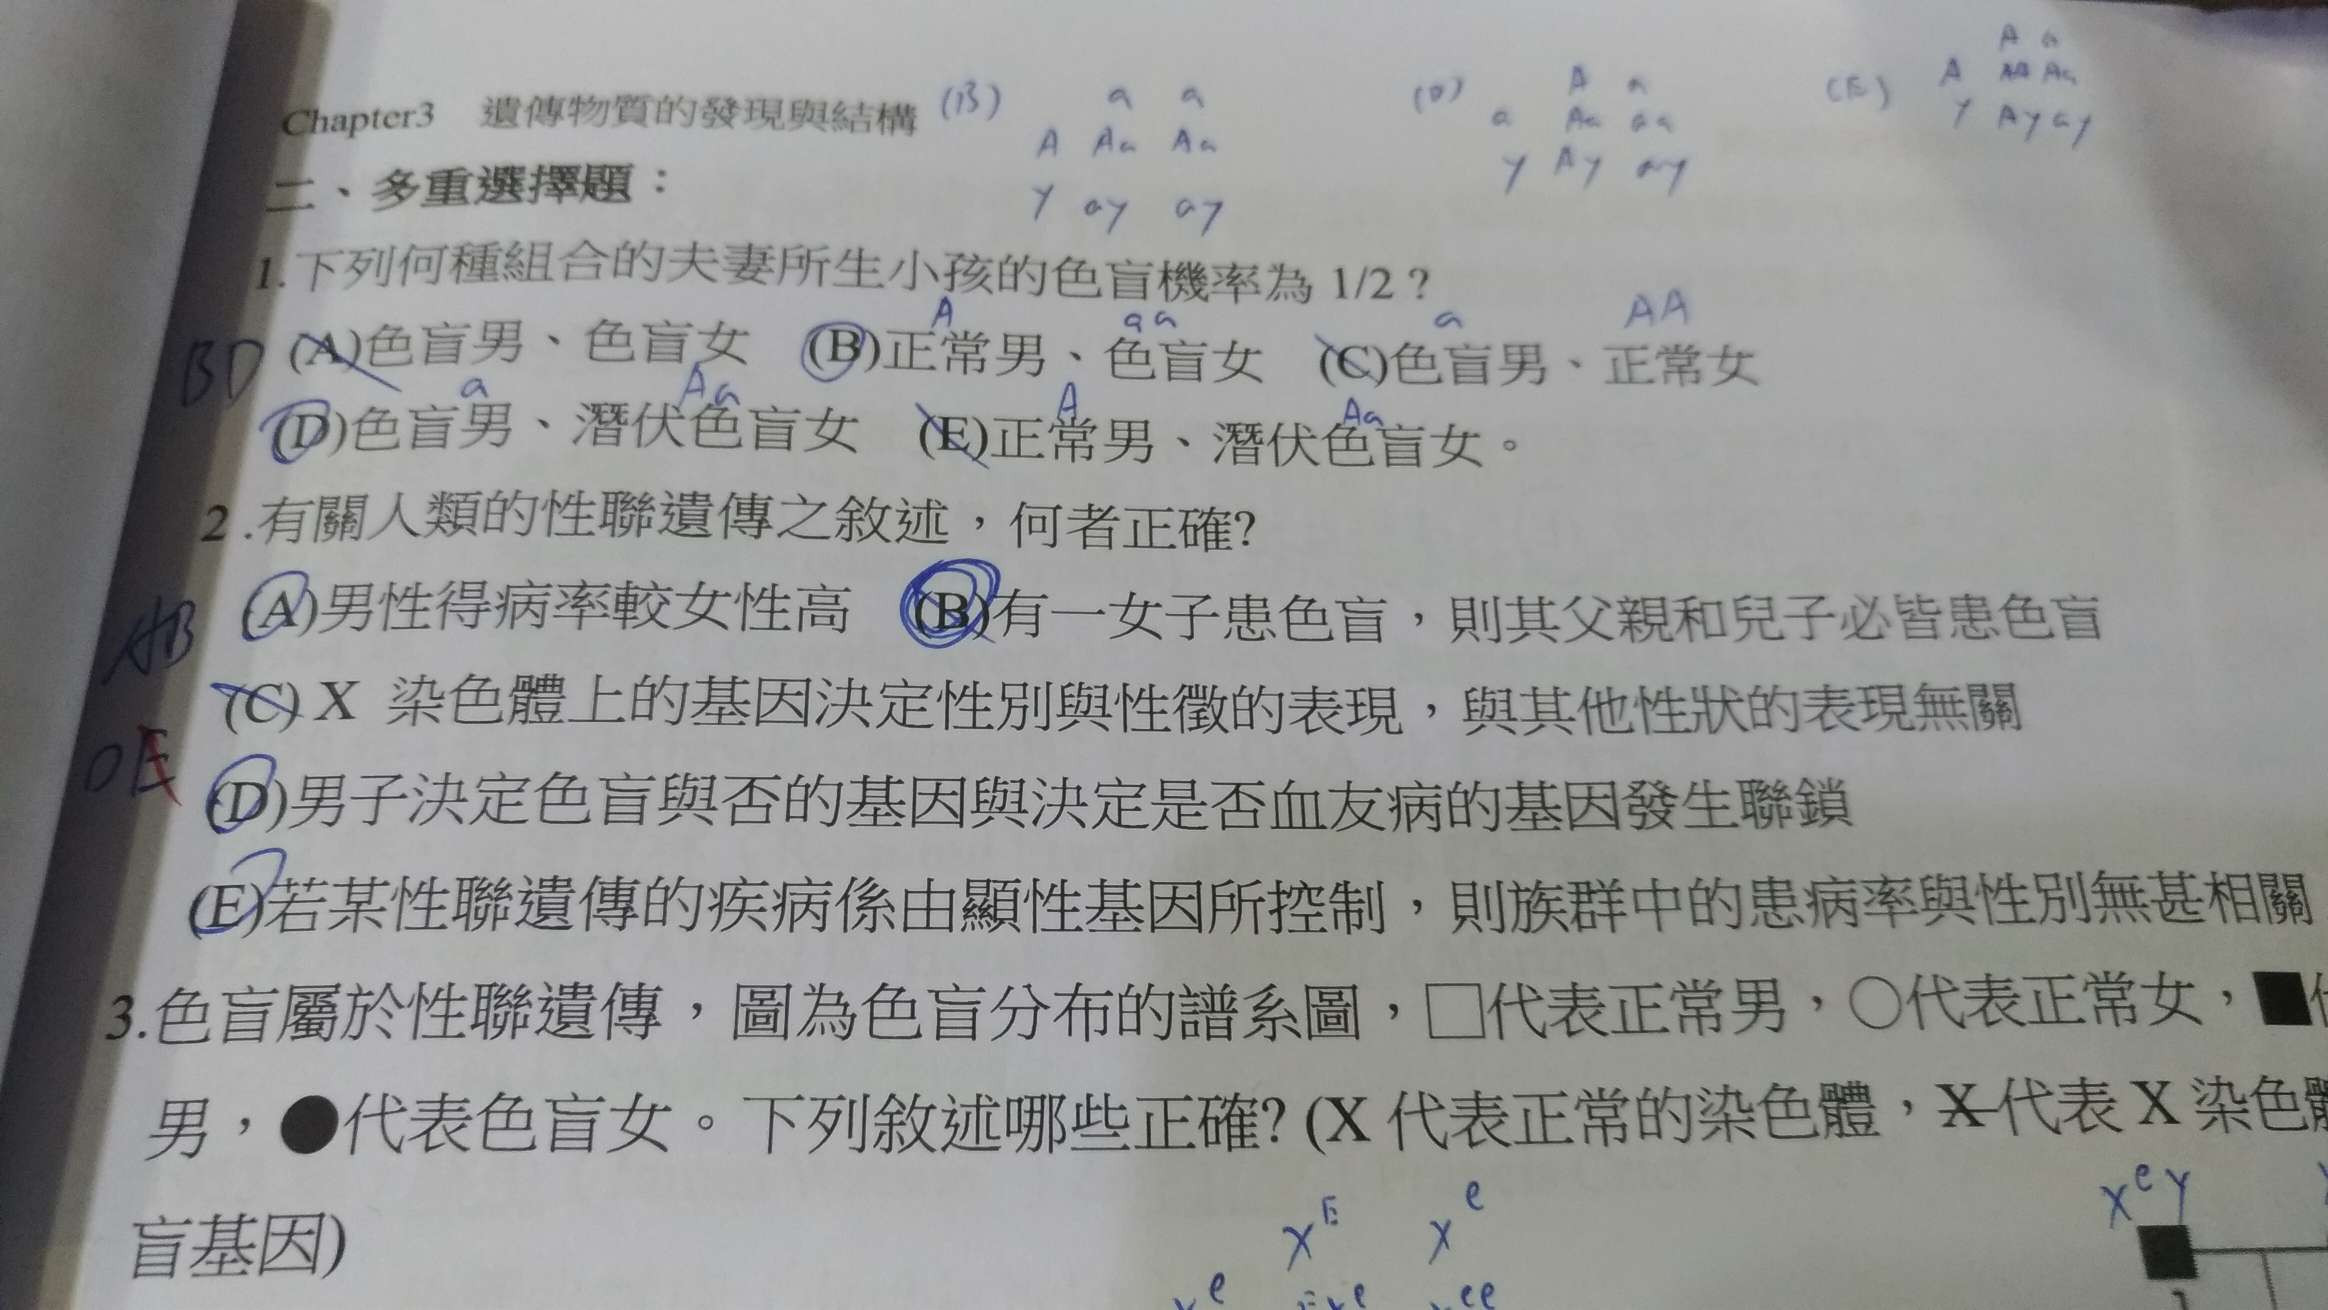 Chapter3 遺傳物質的發現與結構
(B) a a
A Aa Aa
Y ay ay
(D) A a
a Aa aa
Y Ay ay
(E) A a
A AA Aa
Y Ay ay
二、多重選擇題：
1.下列何種組合的夫妻所生小孩的色盲機率為 1/2？
A aa a AA
BD (A)色盲男、色盲女 (B)正常男、色盲女 (C)色盲男、正常女
a Aa A Aa
(D)色盲男、潛伏色盲女 (E)正常男、潛伏色盲女。
2 .有關人類的性聯遺傳之敘述，何者正確?
AB (A)男性得病率較女性高 (B)有一女子患色盲，則其父親和兒子必皆患色盲
(C) X 染色體上的基因決定性別與性徵的表現，與其他性狀的表現無關
DE (D)男子決定色盲與否的基因與決定是否血友病的基因發生聯鎖
(E)若某性聯遺傳的疾病係由顯性基因所控制，則族群中的患病率與性別無甚相關
3.色盲屬於性聯遺傳，圖為色盲分布的譜系圖，□代表正常男，○代表正常女，■
男，●代表色盲女。下列敘述哪些正確? (X 代表正常的染色體，X代表 X 染色
盲基因)
X^E X^e
X^e Y